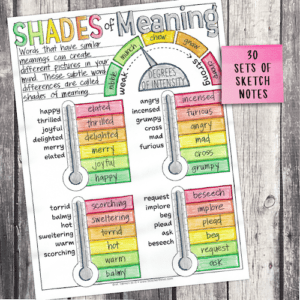 SHADES of Meaning
Words that have similar
meanings can create
different pictures in your
mind. These subtle word
differences are called
shades of meaning.
nibble
munch
chew
gnaw
chomp
weak
strong
DEGREES
OF INTENSITY
30
SETS OF
SKETCH
NOTES
happy
thrilled
joyful
delighted
merry
elated
elated
thrilled
delighted
merry
joyful
happy
angry
incensed
grumpy
cross
mad
furious
incensed
furious
angry
mad
cross
grumpy
torrid
balmy
hot
sweltering
warm
scorching
scorching
sweltering
torrid
hot
warm
balmy
request
implore
beg
plead
ask
beseech
beseech
implore
plead
beg
request
ask